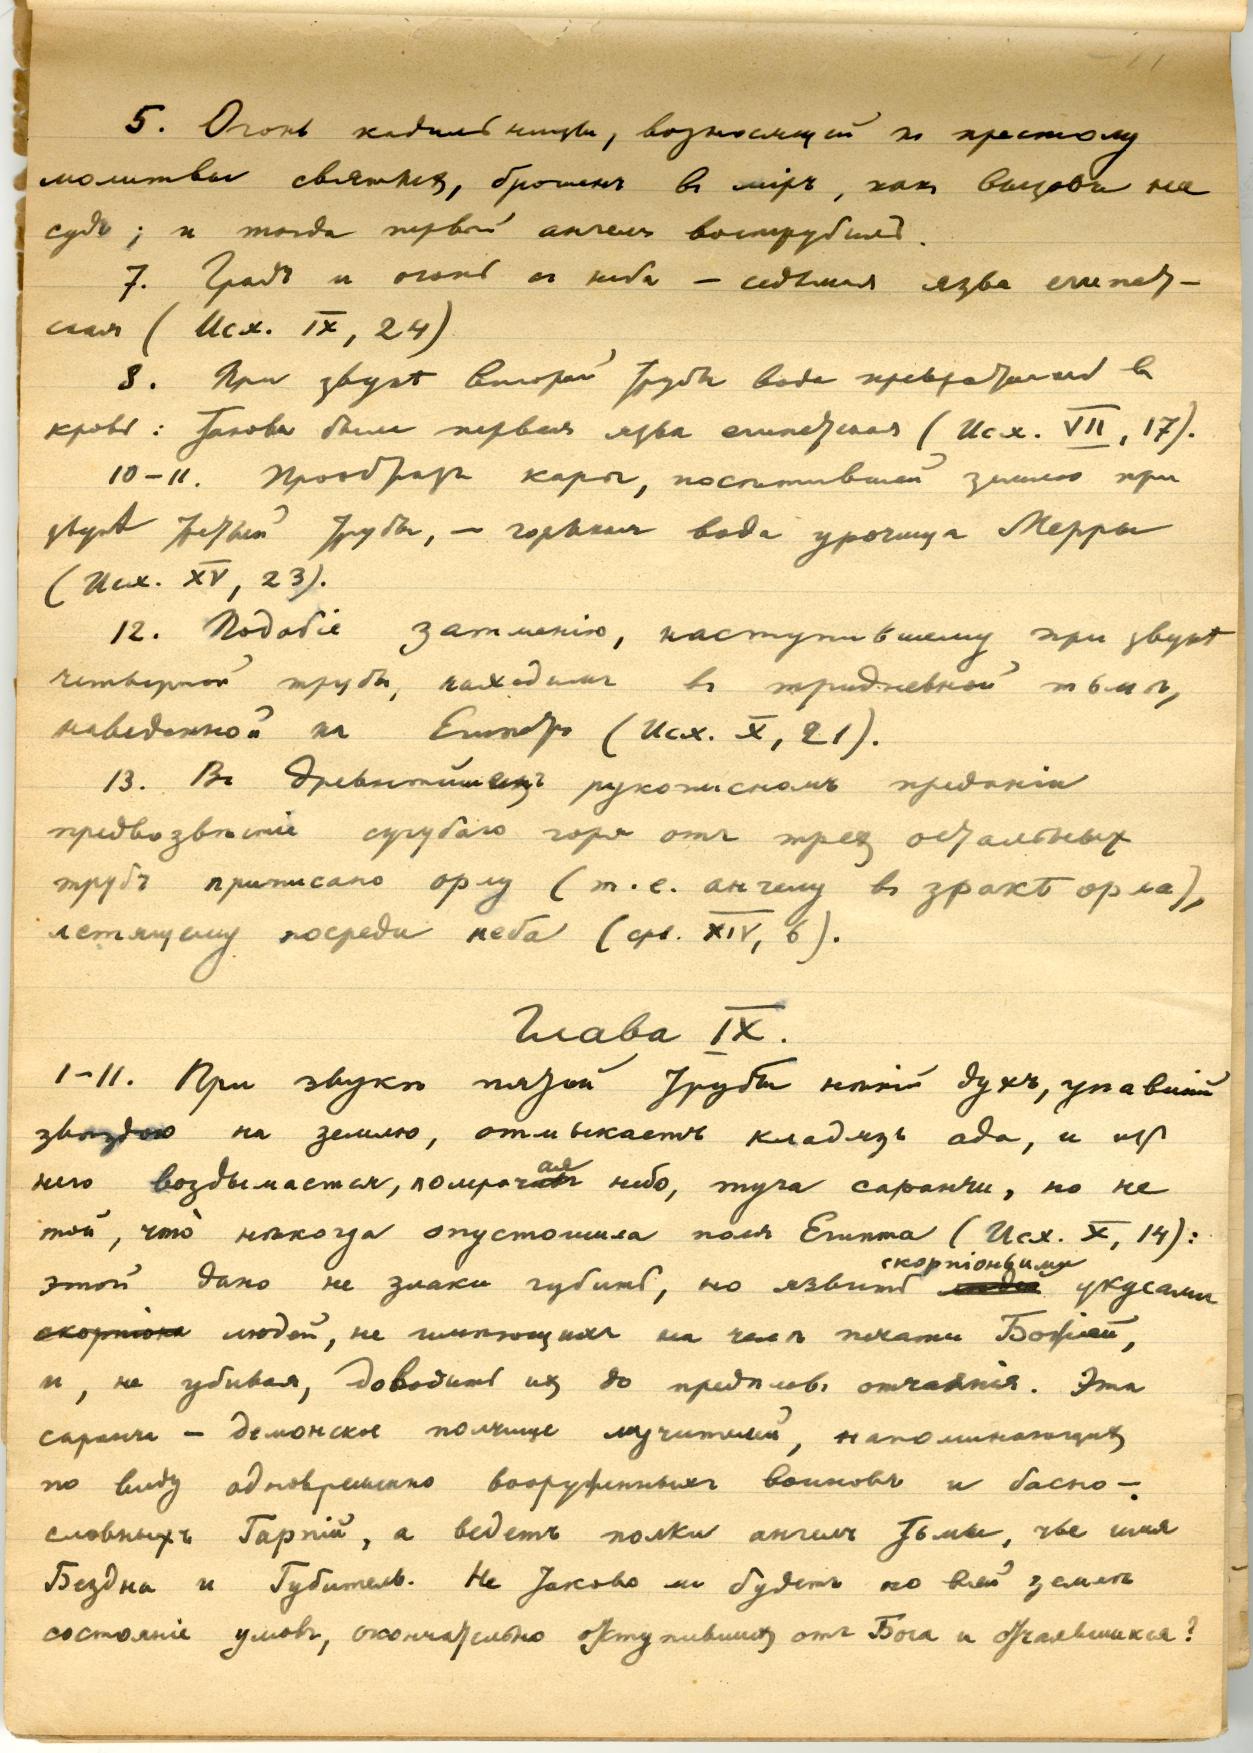 5. Огонь кадильницы, возносящій къ престолу
молитвы святыхъ, брошенъ въ міръ, какъ вызовъ на
судъ; и тогда первый ангелъ вострубилъ.
7. Градъ и огонь съ неба — седьмая язва египет-
ская (Исх. IX, 24)
8. При звукѣ второй трубы вода превратилась въ
кровь: такова была первая язва египетская (Исх. VII, 17).
10-11. Прообразъ кары, постигшей землю при
звукѣ третьей трубы, — горькая вода урочища Мерры
(Исх. XV, 23).
12. Подобіе затменію, наступившему при звукѣ
четвертой трубы, находимъ въ тридневной тьмѣ,
наведенной на Египетъ (Исх. X, 21).
13. Въ древнѣйшемъ рукописномъ преданіи
предвозвѣстіе сугубаго горя отъ трехъ остальныхъ
трубъ приписано орлу (т.е. ангелу въ зракѣ орла),
летящему посреди неба (ср. XIV, 6).
Глава IX.
1-11. При звукѣ пятой трубы нѣкій духъ, упавшій
звѣздою на землю, отмыкаетъ кладязь ада, и изъ
него воздымается, помрачая небо, туча саранчи, но не
той, что̀ нѣкогда опустошила поля Египта (Исх. X, 14):
скорпіоньими
этой дано не злаки губить, но язвить укусами
скорпіона людей, не имѣющихъ на челѣ печати Божіей,
и, не убивая, доводить ихъ до предѣловъ отчаянія. Эта
саранча — демонское полчище мучителей, напоминающихъ
по виду одновременно вооруженныхъ воиновъ и басно-
словныхъ Гарпій, а ведетъ полки ангелъ тьмы, чье имя
Бездна и Губитель. Не таково ли будетъ по всей землѣ
состояніе умовъ, окончательно отступившихъ отъ Бога и отчаявшихся?